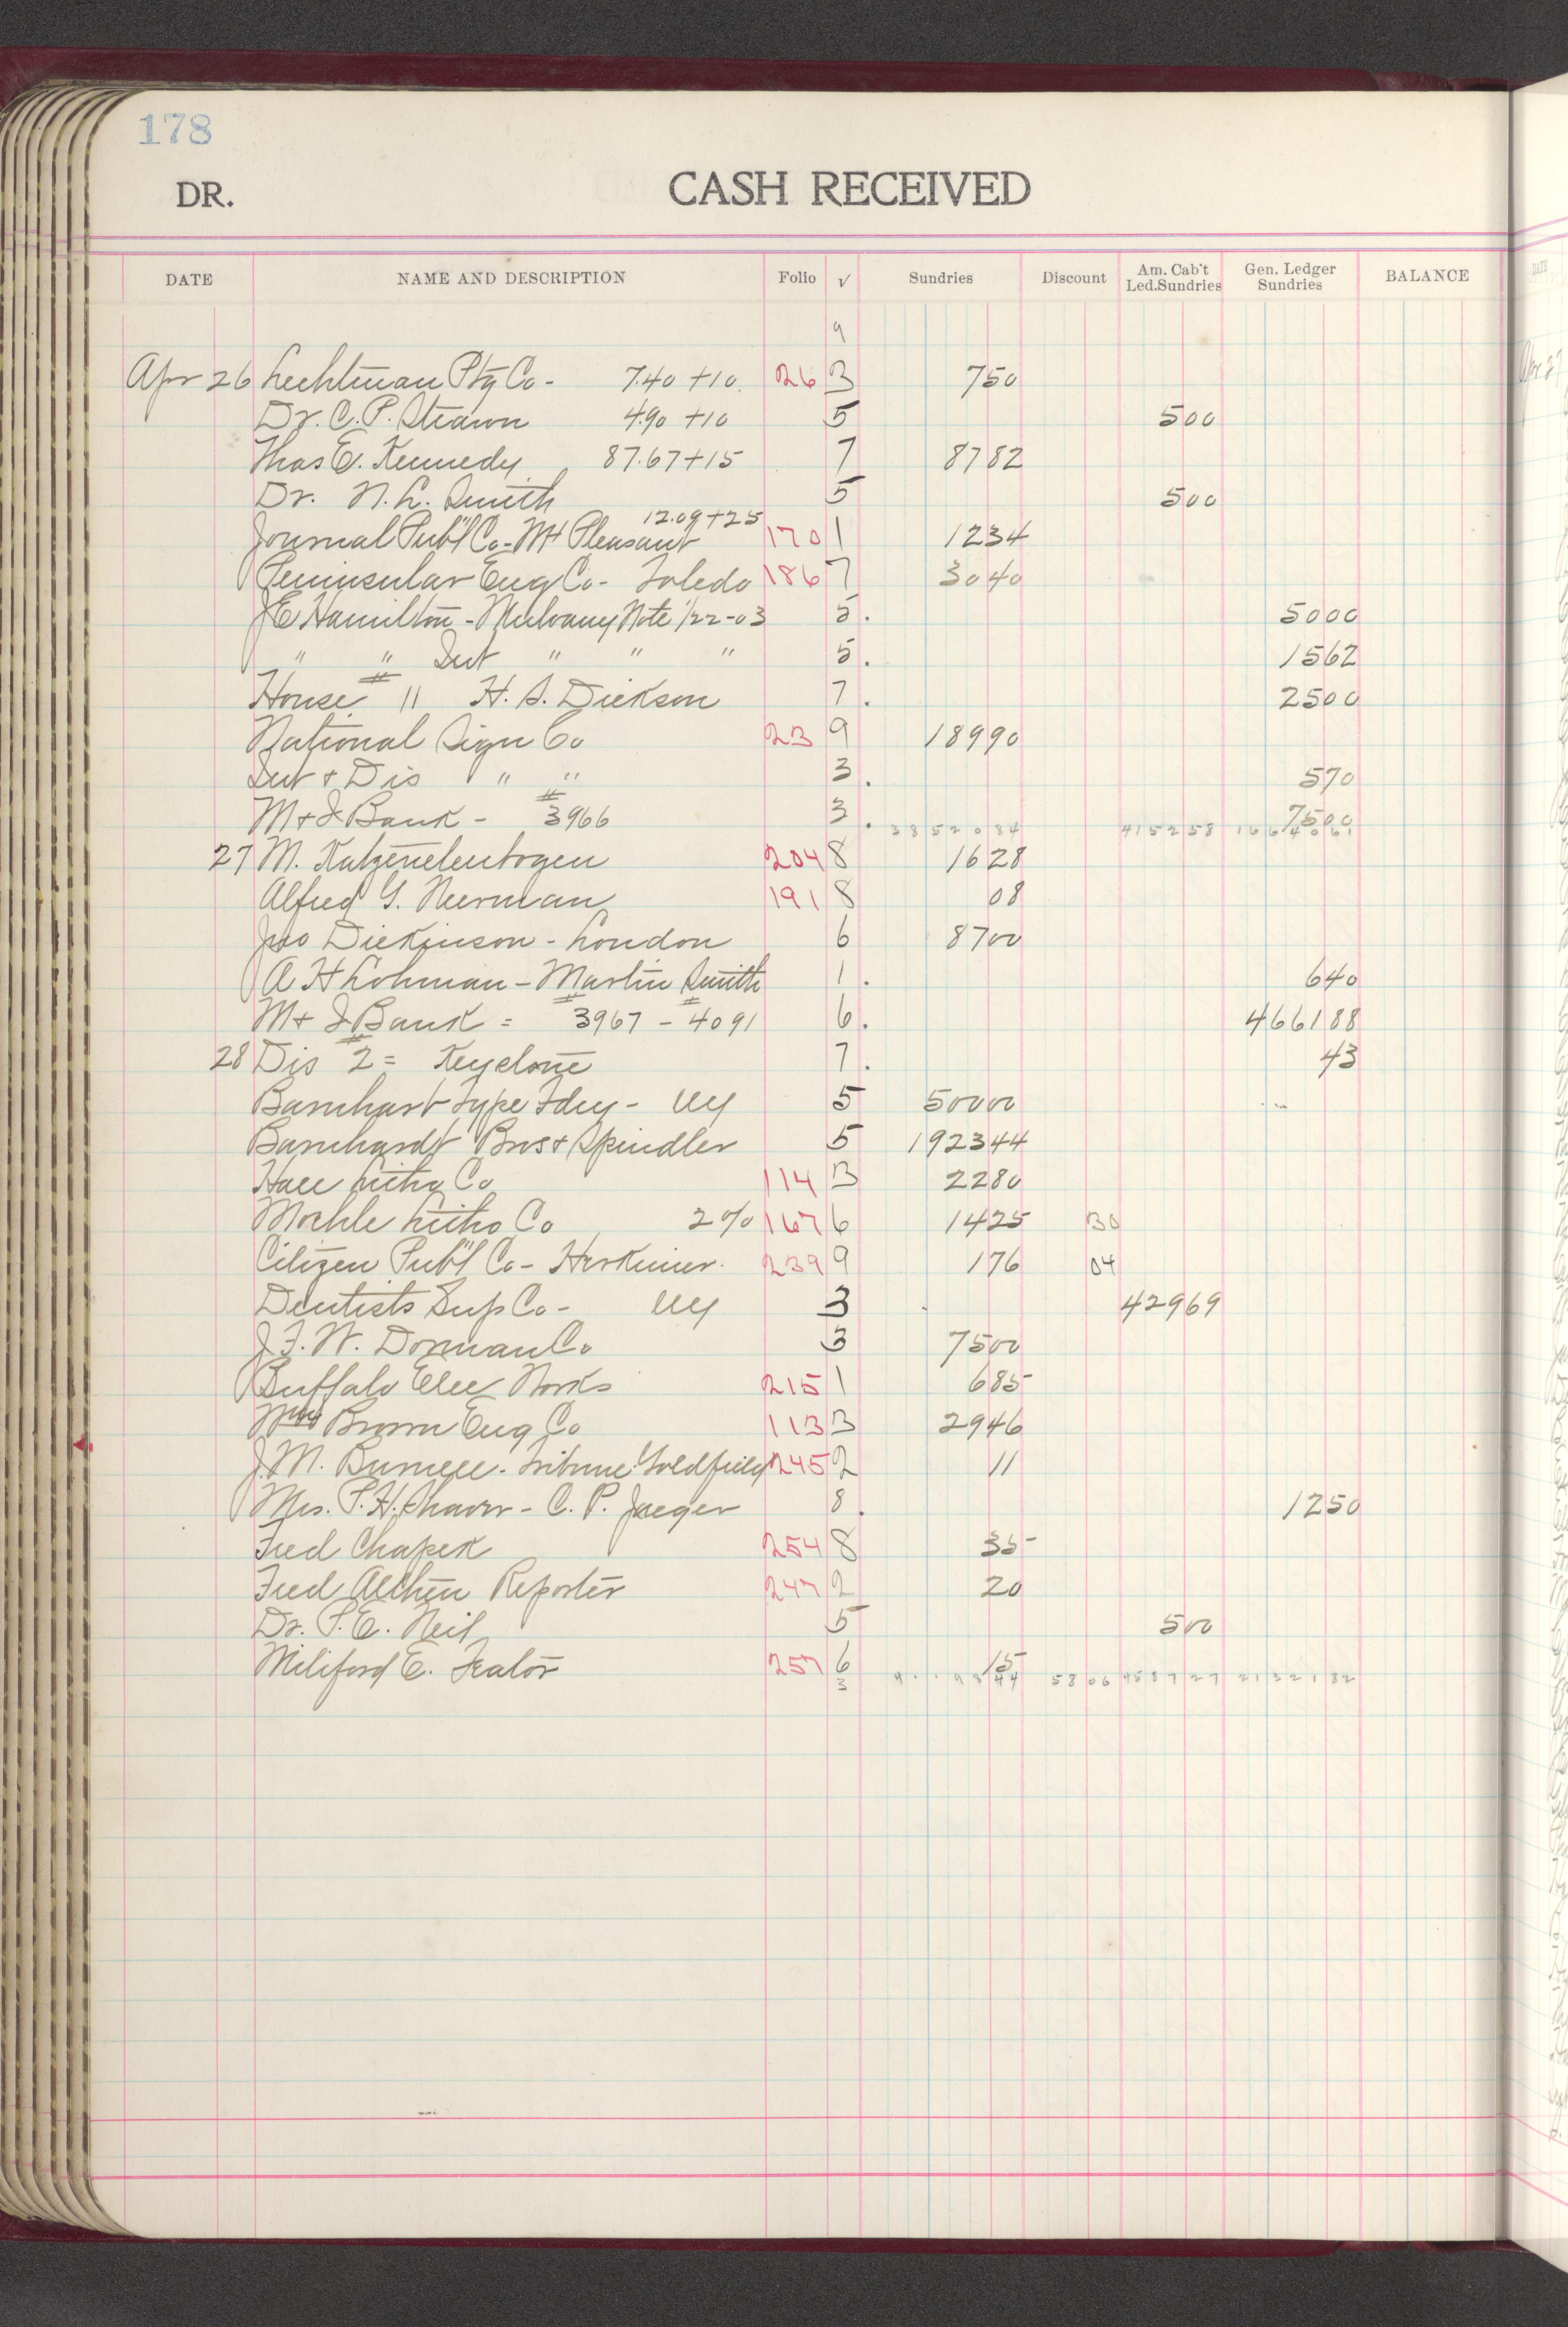 178
DR. CASH RECEIVED
DATE NAME AND DESCRIPTION Folio √ Sundries Discount Am. Cab't Led.Sundries Gen. Ledger Sundries BALANCE
9
Apr 26 Lechtman Ptg Co - 7.40 + 10 26 3 750
Dr. C. P. Strawn 4.90 + 10 5 500
Thas E. Kennedy 87.67 + 15 7 8782
Dr. N. L. Smith 5 500
Journal Pub'l Co - Mt Pleasant 12.09 + 25 170 1 1234
Peninsular Eng Co - Toledo 186 7 3040
J E Hamilton - Mulvany Note 1/22-03 5 . 5000
" " Int " " " 5 . 1562
House # 11 H. S. Dickson 7 . 2500
National Sign Co 23 9 18990
Int + Dis " " 3 . 570
M + I Bank - # 3966 3 . 7500
3852084 415258 1664061
27 M. Katzenelenbogen 204 8 1628
Alfred G. Neerman 191 8 08
Jno Dickinson - London 6 8700
A H Lohman - Martin Smith 1 . 640
M + I Bank = # 3967 - # 4091 6 . 466188
28 Dis # 2 = Keyclone 7 . 43
Barnhart Type Fdry - NY 5 50000
Barnhardt Bros + Spindler 5 192344
Hall Litho Co 114 3 2280
Moehle Litho Co 2% 167 6 1425 30
Citizen Pub'l Co - Herkimer. 239 9 176 04
Dentists Sup Co - NY 3 42969
J. F. W. Dorman Co 3 7500
Buffalo Elec Works 215 1 685
Wm Brown Eng Co 113 3 2946
J. M. Burnell - Tribune Goldfield 245 2 11
Mrs. P. H. Shaver - C. P. Jaeger 8 . 1250
Fred Chapek 254 8 35
Fred Althen Reporter 247 2 20
Dr. P. E. Neil 5 500
Miliford E. Fealor 257 6 15
3 44 5806 458727 2132182